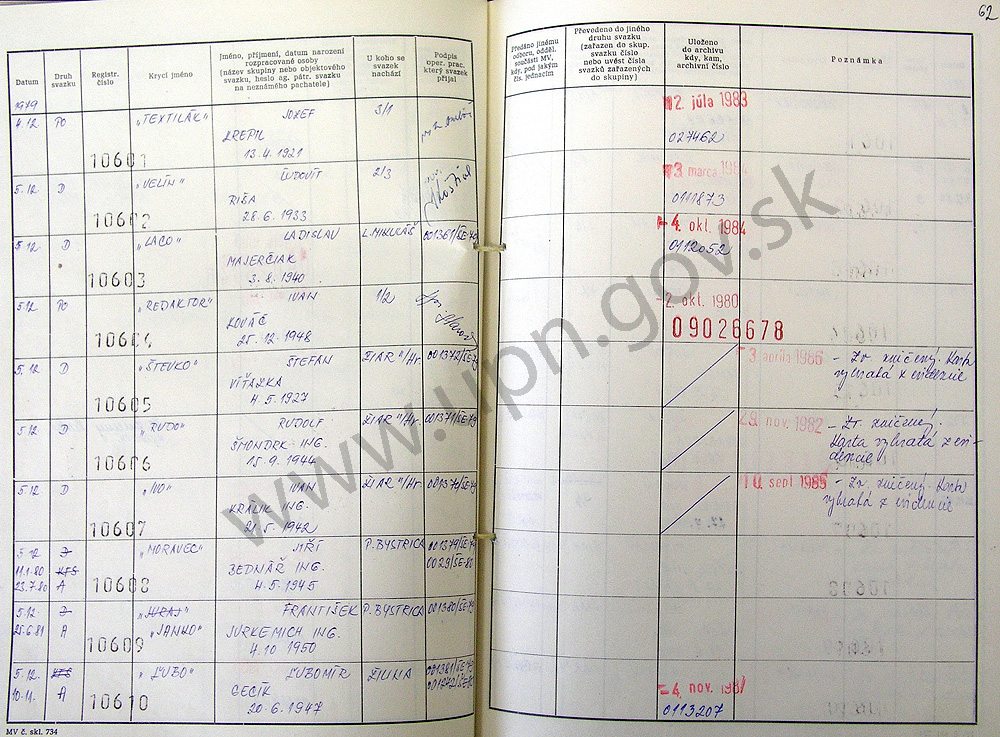 62
Datum
Druh svazku
Registr. číslo
Krycí jméno
Jméno, příjmení, datum narození
rozpracované osoby
(název skupiny nebo objektového
svazku, heslo ag. pátr. svazku
na neznámého pachatele)
U koho se
svazek
nachází
Podpis
oper. prac.
který svazek
přijal
Předáno jinému
odboru, odděl.
součásti MV,
kdy, pod jakým
čís. jednacím
Převedeno do jiného
druhu svazku
(zařazen do skup.
svazku číslo
nebo uvést čísla
svazků zařazených
do skupiny)
Uloženo
do archivu
kdy, kam,
archivní číslo
Poznámka
1979
4.12. PO 10601 „TEXTILÁK" JOZEF 3/1
KREPIL
13.4.1921
12. júla 1983
027462
5.12 D 10602 „VELÍN" ĽUDOVÍT 2/3
RIŠA
28.6.1933
13. marca 1984
0111873
5.12 D 10603 „LACO" LADISLAV L.MIKULÁŠ 001361/ŠE-79
MAJERČIAK
3.8.1940
-4. okt. 1984
0112052
5.12. PO 10604 „REDAKTOR" IVAN 1/2
KOVÁČ
25.12.1948
-2. okt. 1980
09026678
5.12. D 10605 „ŠTEVKO" ŠTEFAN ŽIAR n/Hr. 001372/ŠE-79
VÍŤAZKA
4.5.1927
3. apríla 1986 - Zv. zničený. Karta
vybratá z evidencie
5.12 D 10606 „RUDO" RUDOLF ŽIAR n/Hr. 001371/ŠE-79
ŠMONDRK ING.
15.9.1944
29. nov. 1982 - Zv. zničený.
Karta vybratá z evi-
dencie
5.12 D 10607 „IVO" IVAN ŽIAR n/Hr. 001374/ŠE-79
KRÁLIK ING.
21.5.1942
10. sept. 1985 - Zv. zničený. Karta
vybratá z evidencie
5.12 D 10608 „MORAVEC" JIŘÍ P.BYSTRICA 001379/ŠE-79
11.1.80 KFS BEDNÁŘ ING. 0029/ŠE-80
23.7.80 A 4.5.1945
5.12. D 10609 „JURAJ" FRANTIŠEK P.BYSTRICA 001380/ŠE-79
25.6.81 A „JANKO" JURKEMICH ING.
4.10 1950
5.12. KFS 10610 „ĽUBO" ĽUBOMÍR ŽILINA 001381/ŠE-79
10.11. A CECÍK
20.6.1947
-4. nov. 1987
0113207
MV č. skl. 734
www.upn.gov.sk